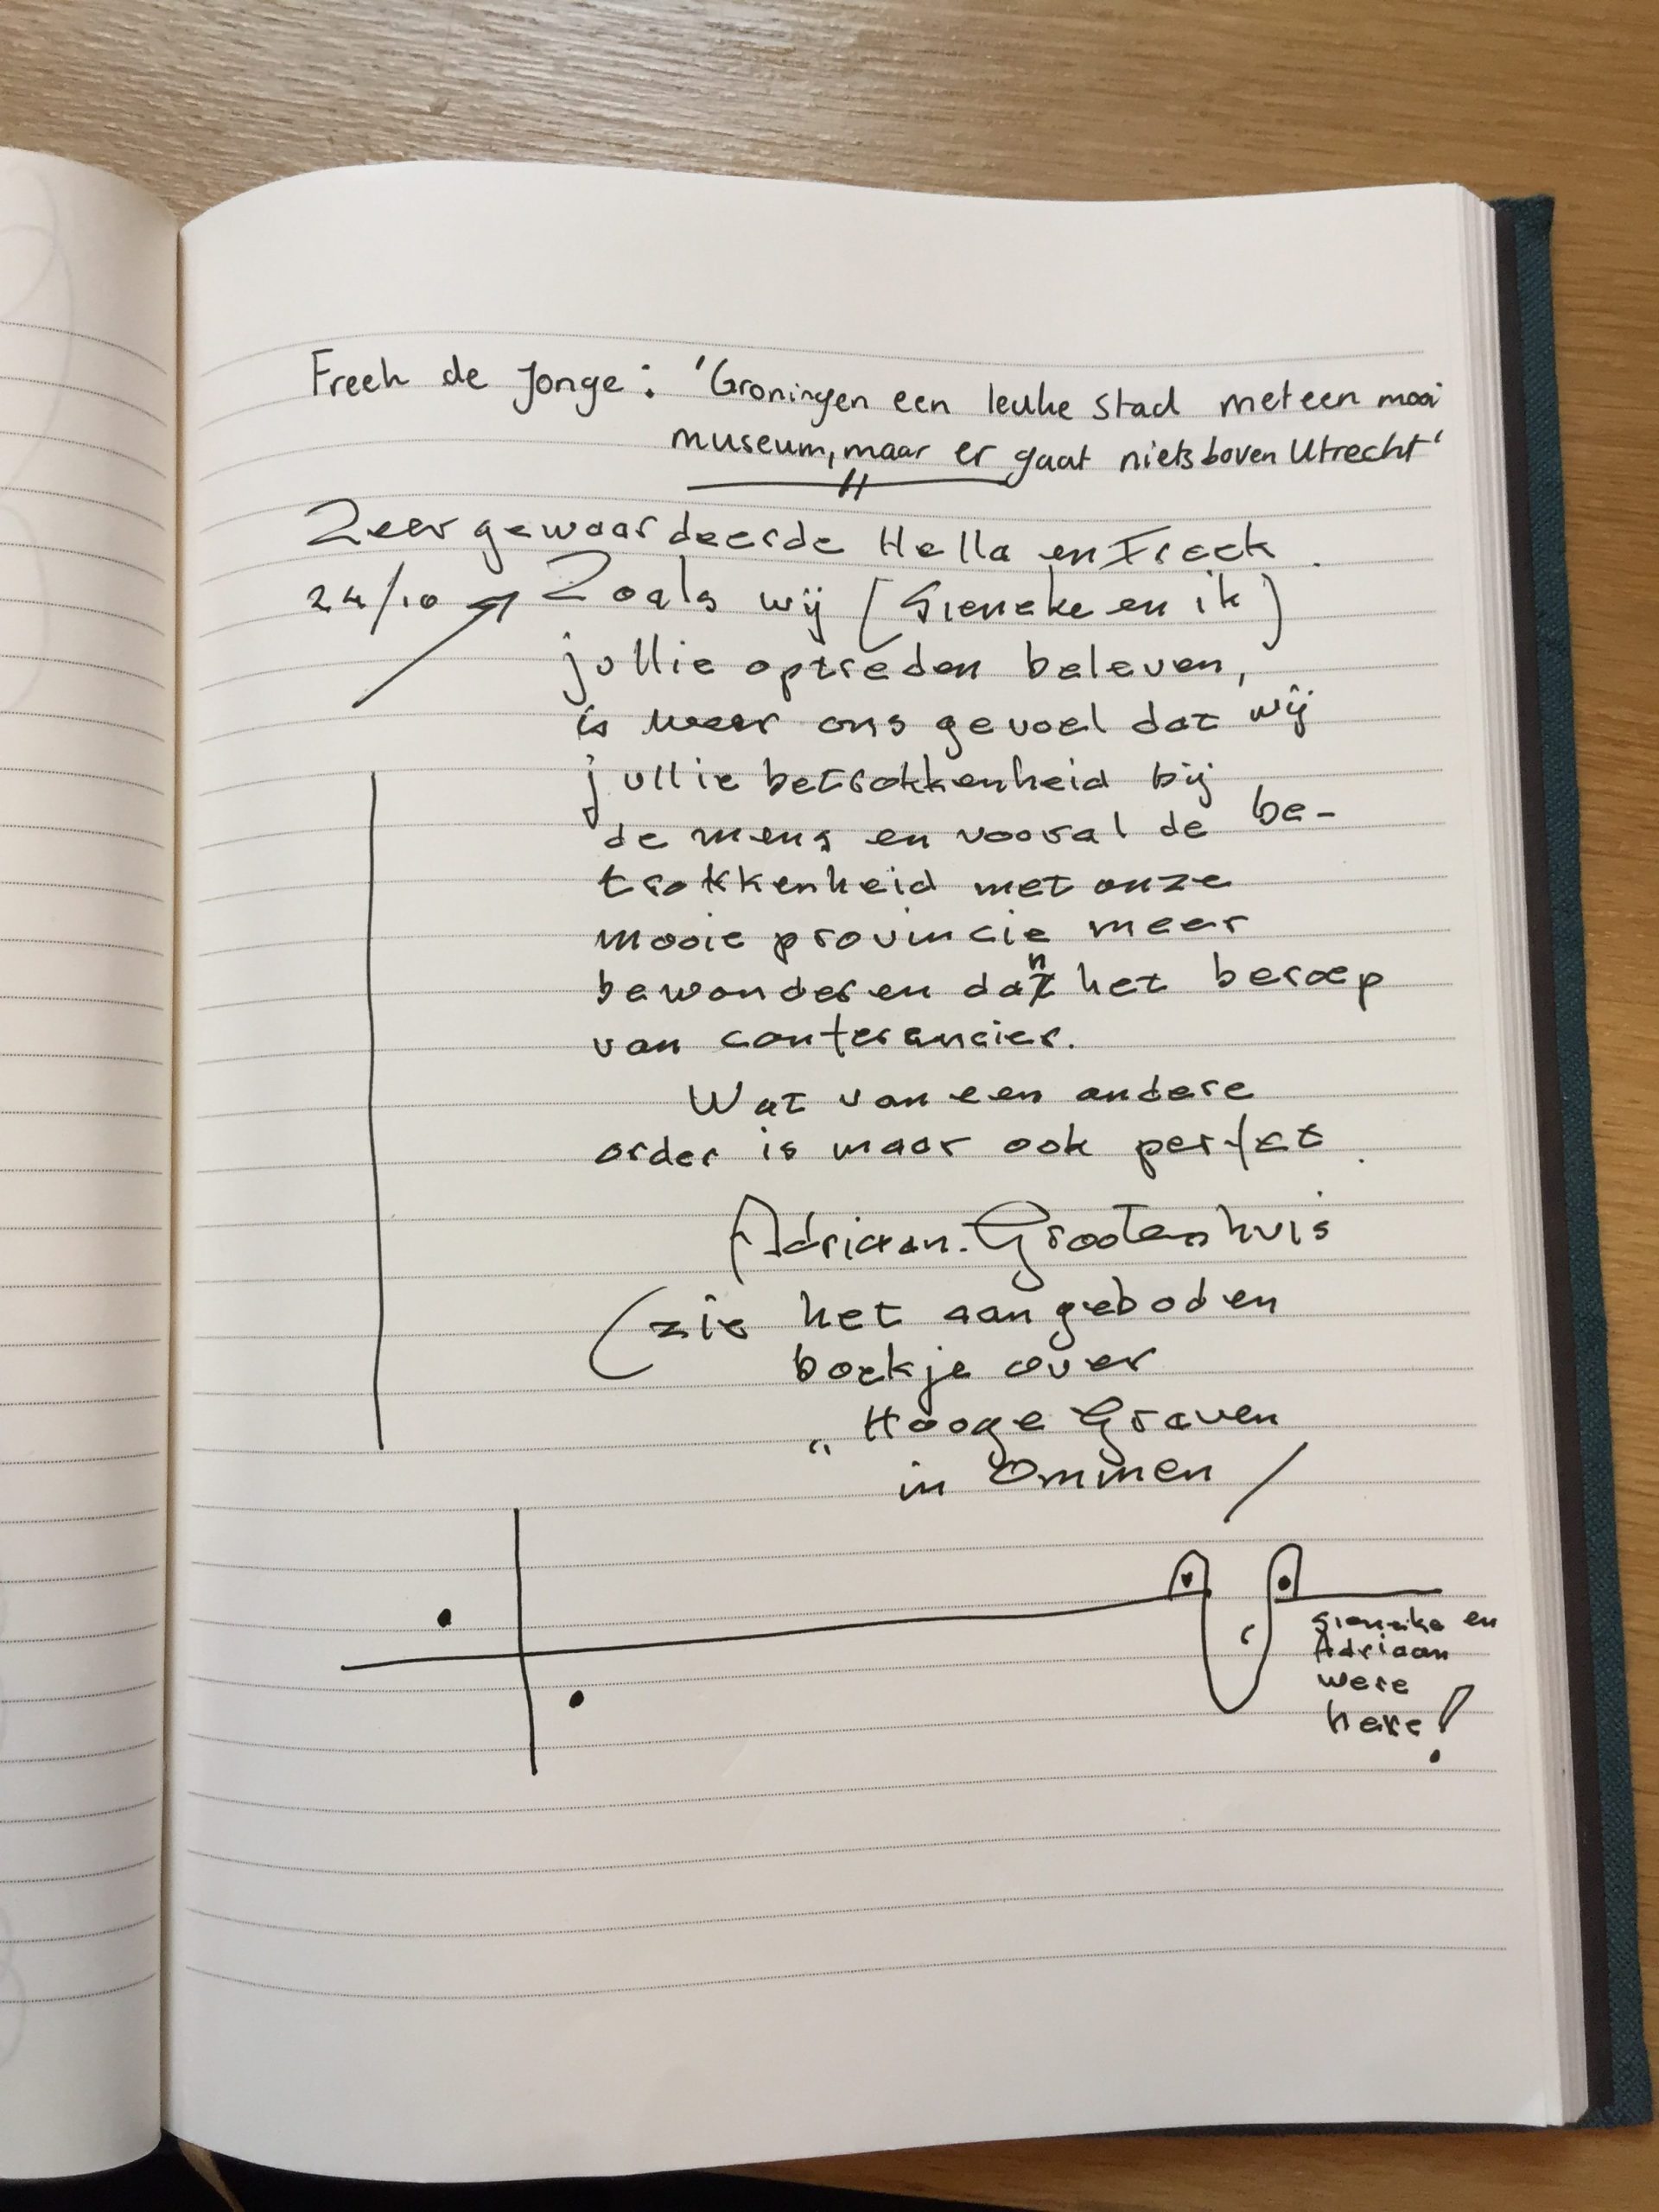 Freek de Jonge: 'Groningen een leuke stad met een mooi
museum, maar er gaat niets boven Utrecht'
Zeer gewaardeerde Hella en Freek.
24/10 Zoals wij (Sieneke en ik)
jullie optreden beleven,
is weer ons gevoel dat wij
jullie betrokkenheid bij
de mens en vooral de be-
trokkenheid met onze
mooie provincie meer
bewonderen dan het beroep
van conferencier.
Wat van een andere
order is maar ook perfekt.
Adriaan. Grootenhuis
(zie het aangeboden
boekje over
„Hooge Graven
in Ommen /
Sieneke en
Adriaan
were
here!